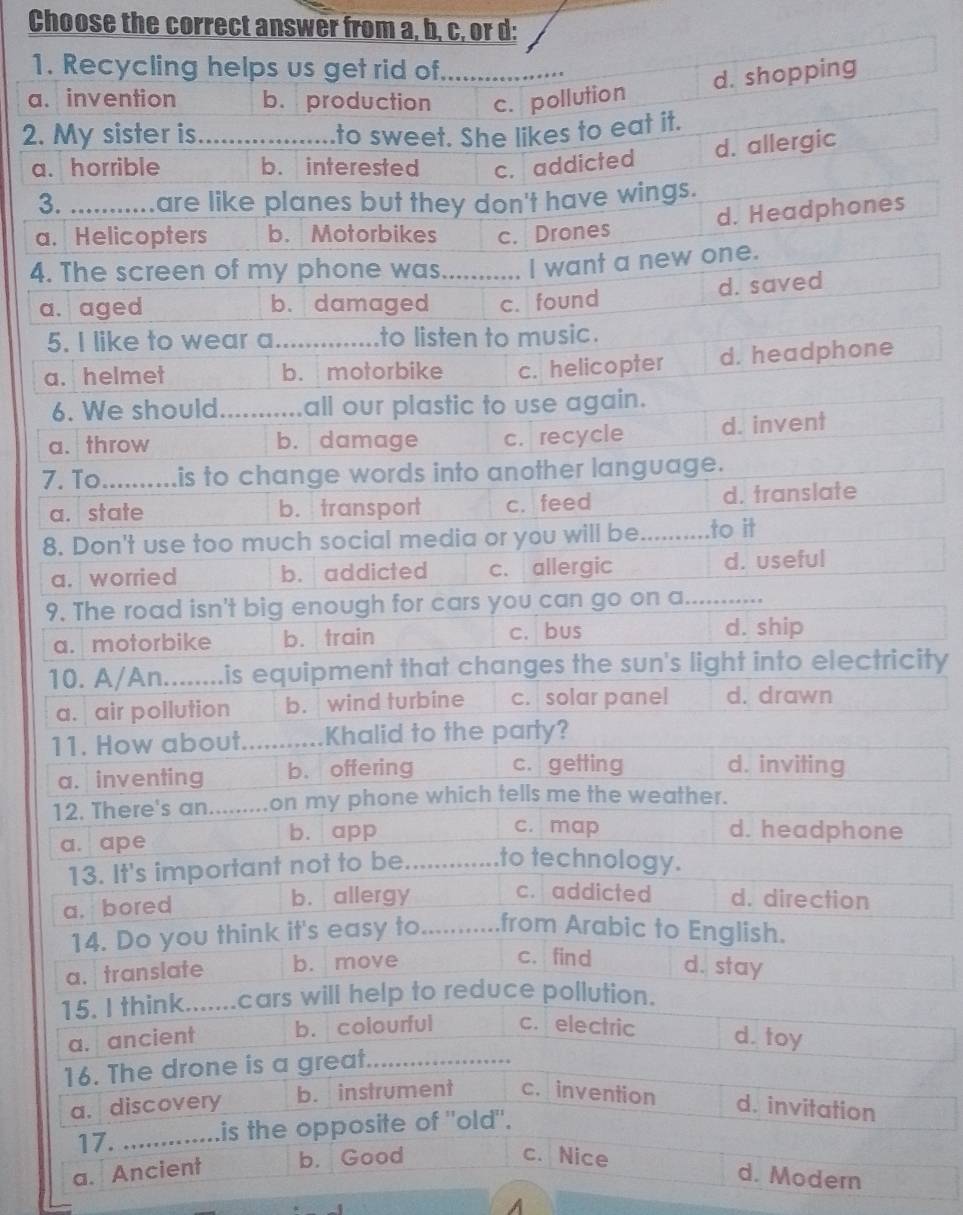 Choose the correct answer from a, b, c, or d:
1. Recycling helps us get rid of.................
a. invention b. production c. pollution d. shopping
2. My sister is...................to sweet. She likes to eat it.
a. horrible b. interested c. addicted d. allergic
3. ............are like planes but they don't have wings.
a. Helicopters b. Motorbikes c. Drones d. Headphones
4. The screen of my phone was........... I want a new one.
a. aged b. damaged c. found d. saved
5. I like to wear a...............to listen to music.
a. helmet b. motorbike c. helicopter d. headphone
6. We should............all our plastic to use again.
a. throw b. damage c. recycle d. invent
7. To..........is to change words into another language.
a. state b. transport c. feed d. translate
8. Don't use too much social media or you will be..........to it
a. worried b. addicted c. allergic d. useful
9. The road isn't big enough for cars you can go on a...........
a. motorbike b. train c. bus d. ship
10. A/An........is equipment that changes the sun's light into electricity
a. air pollution b. wind turbine c. solar panel d. drawn
11. How about...........Khalid to the party?
a. inventing b. offering c. getting d. inviting
12. There's an.........on my phone which tells me the weather.
a. ape b. app c. map d. headphone
13. It's important not to be.............to technology.
a. bored b. allergy c. addicted d. direction
14. Do you think it's easy to...........from Arabic to English.
a. translate b. move c. find d. stay
15. I think.......cars will help to reduce pollution.
a. ancient b. colourful c. electric d. toy
16. The drone is a great....................
a. discovery b. instrument c. invention d. invitation
17. ..............is the opposite of "old".
a. Ancient b. Good c. Nice d. Modern